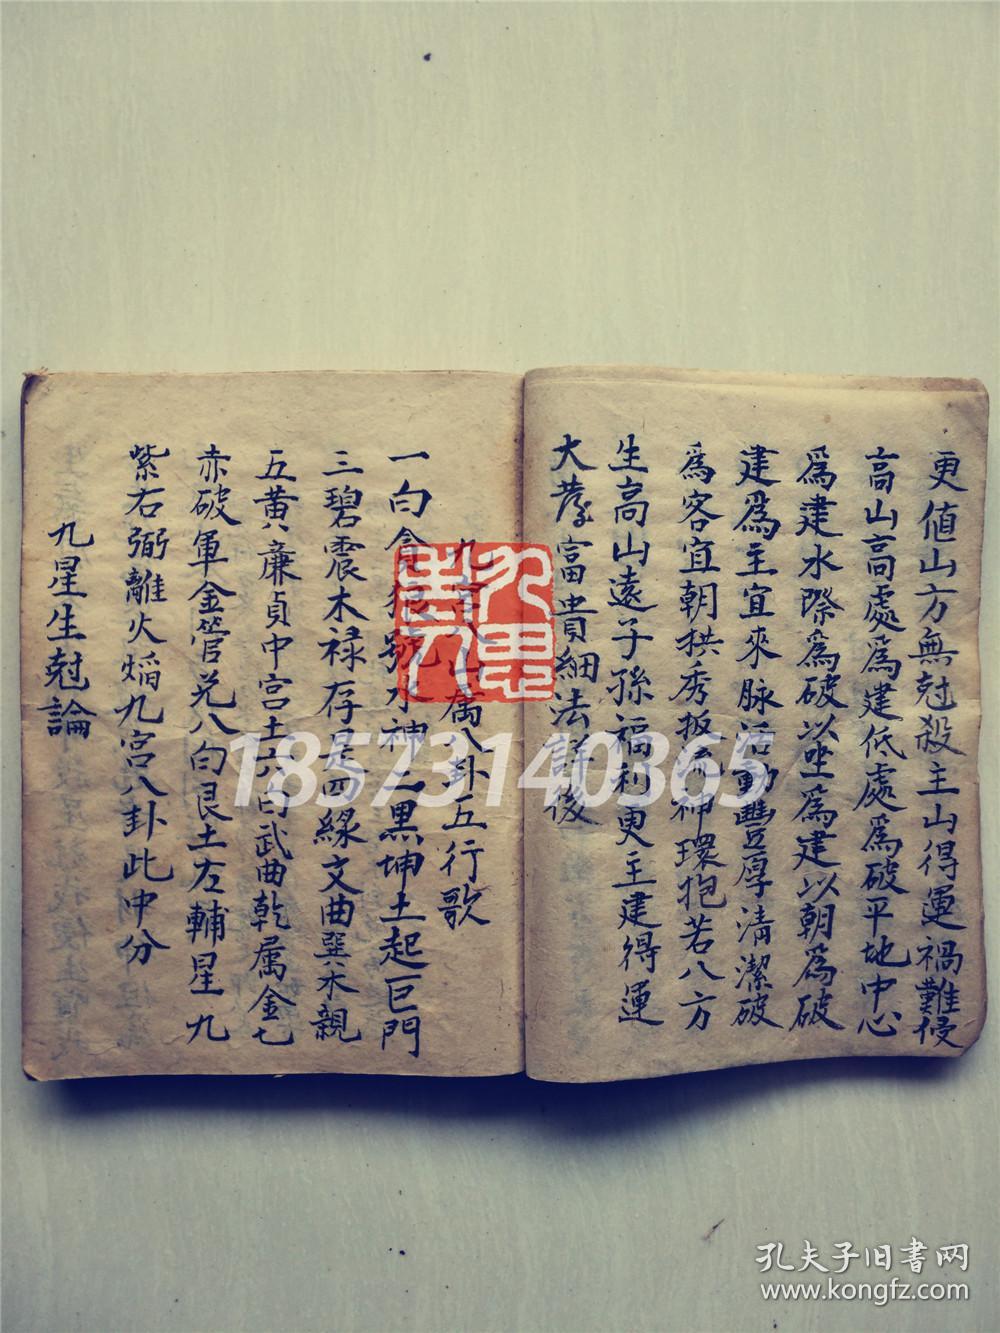 更値山方無尅殺主山得運禍難侵
高山高處爲建低處爲破平地中心
爲建水際爲破以坐爲建以朝爲破
建爲主宜來脉活動豐厚清潔破
爲客宜朝拱秀扳流神環抱若八方
生高山遠子孫福利更主建得運
大發富貴細法詳後
九宫八山属八卦五行歌
一白貪狼號水神二黒坤土起巨門
三碧震木禄存是四緑文曲巽木親
五黄廉貞中宫土六白武曲乾属金七
赤破軍金管兑八白艮土左輔星九
紫右弼離火焰九宫八卦此中分
九星生尅論
18573140365
孔夫子旧書网
www.kongfz.com